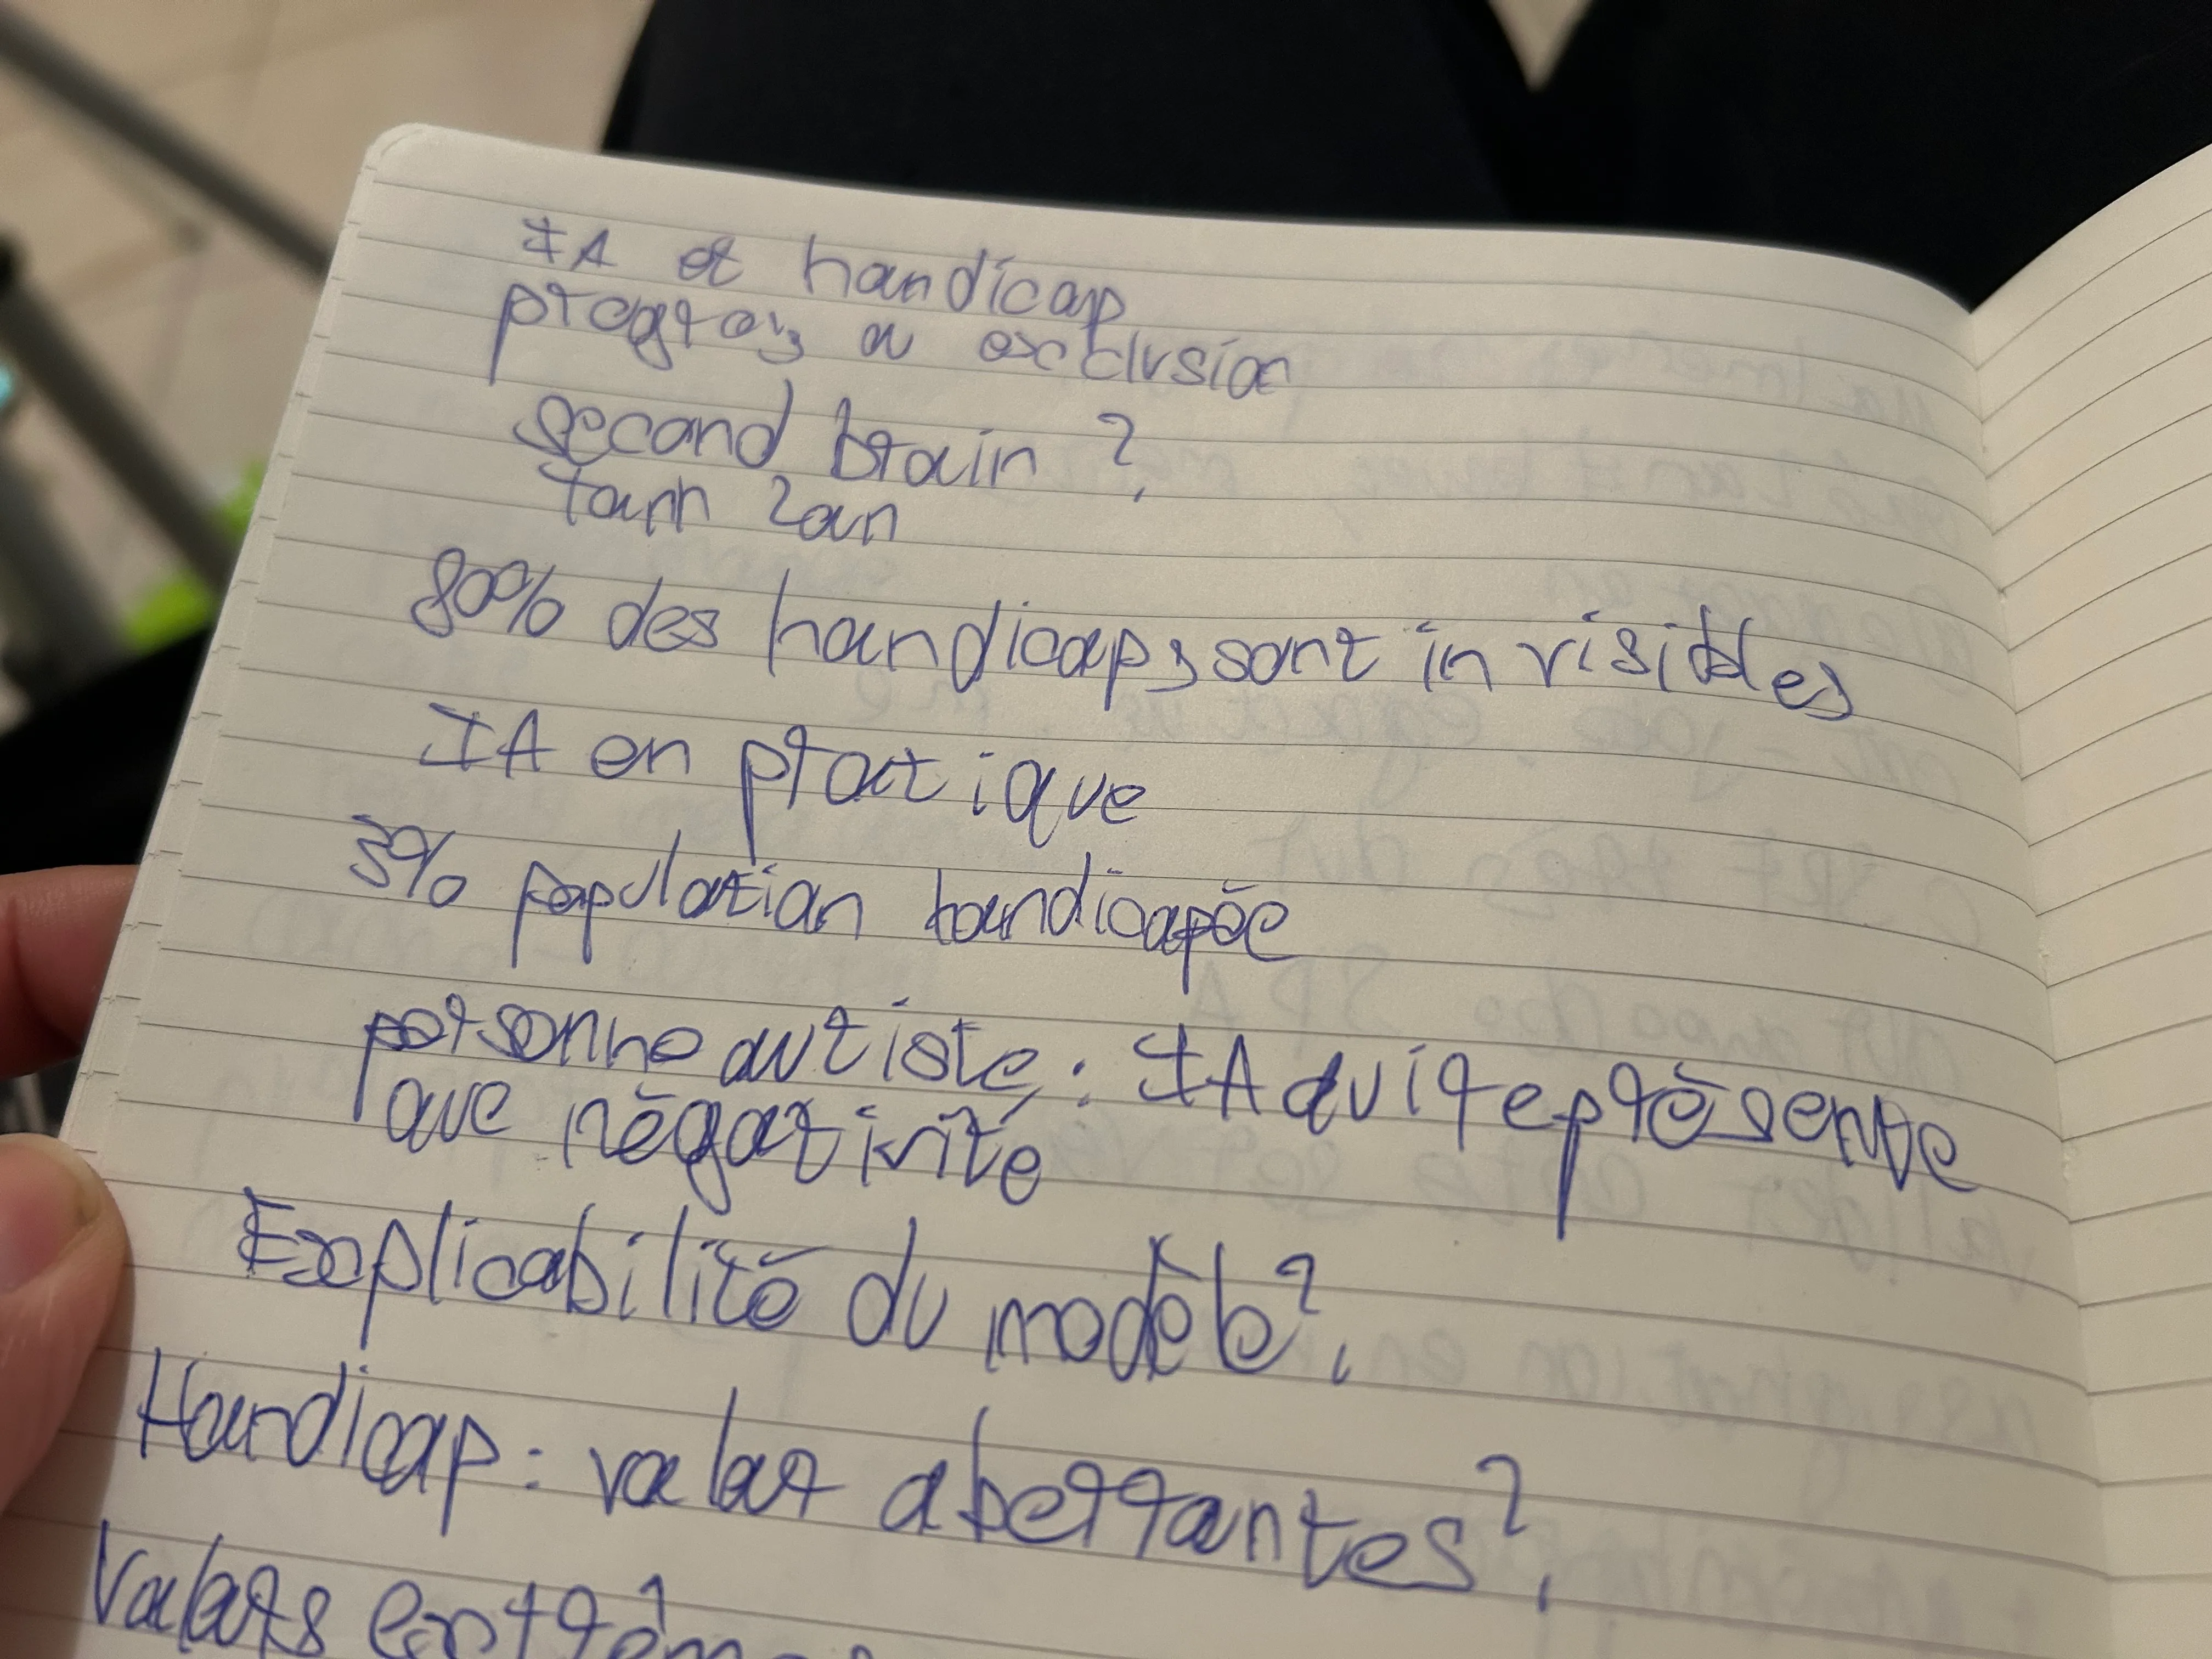 IA et handicap
progrès ou exclusion
second brain ?
80% des handicaps sont invisibles
IA en pratique
3% population handicapée
personne autiste : IA qui représente
que négativité
Explicabilité du modèle ?
Handicap : valeur aberrantes ?
Valeurs extrêmes